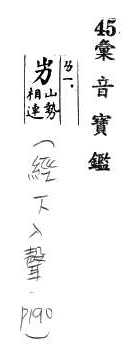 45彙音寶鑑
屴山勢相連
(經下入聲,P190)